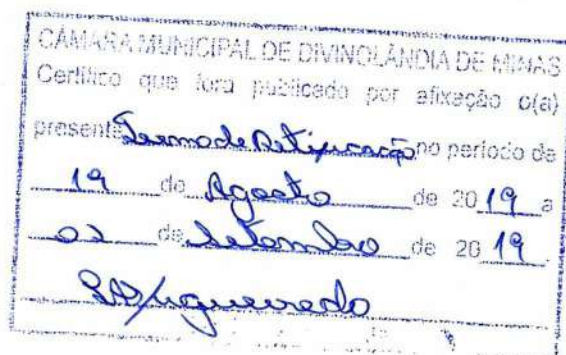 CÂMARA MUNICIPAL DE DIVINOLÂNDIA DE MINAS
Certifico que fora publicado por afixação o(a)
presente Termo de Retificação no período de
19 de Agosto de 2019 a
02 de Setembro de 2019.